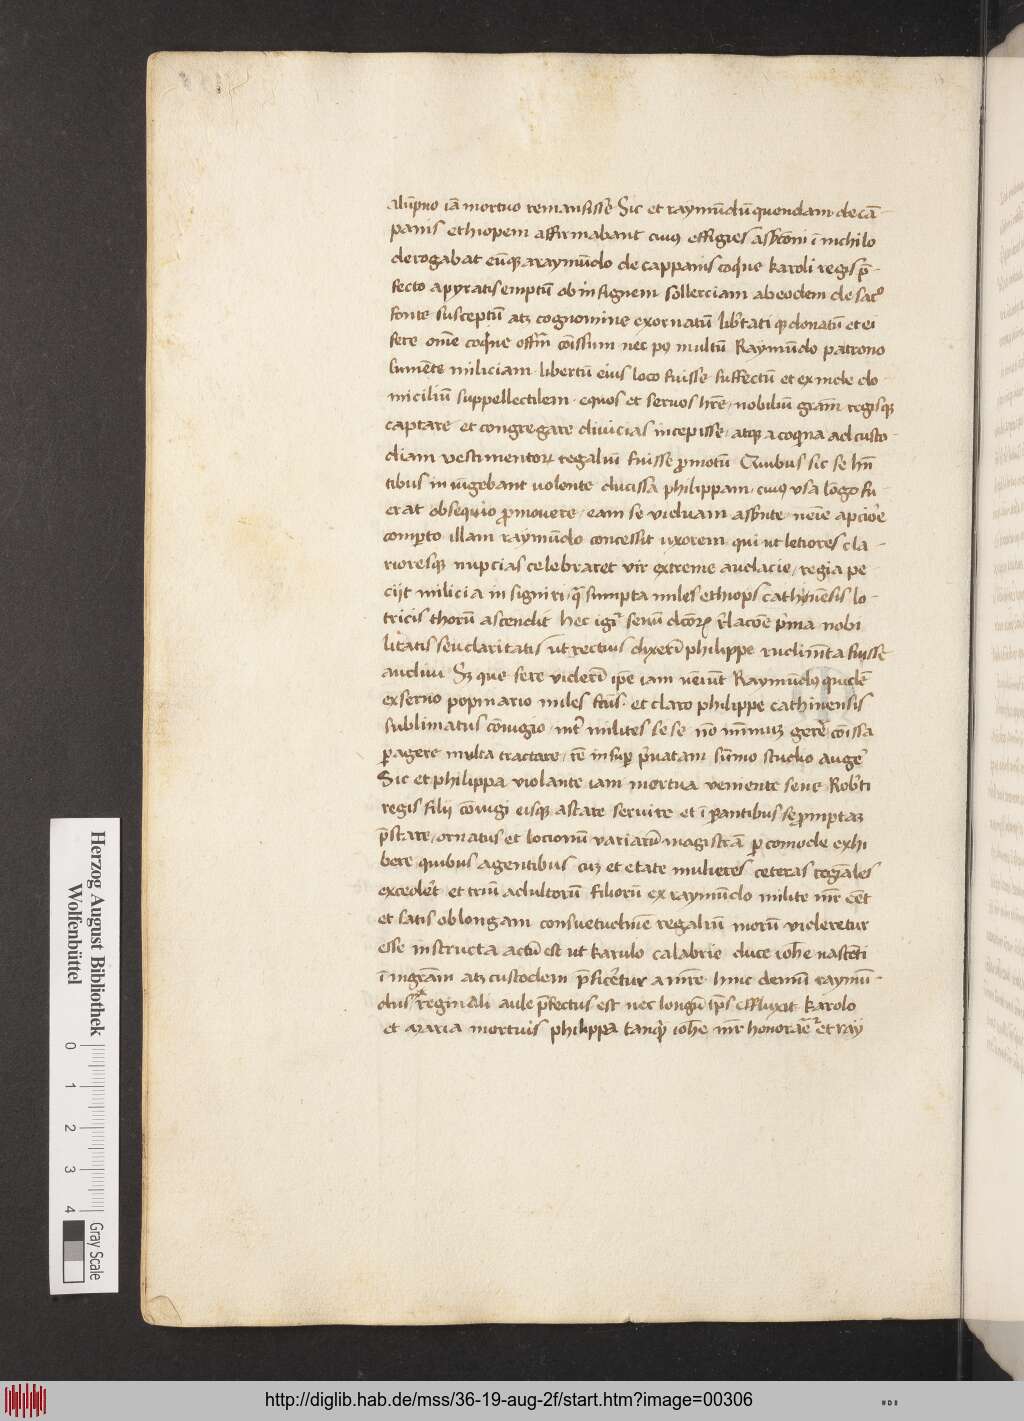 alūpno iā mortuo remansisse Sic et raymūdū quendam de cā-
panis ethiopem affirmabant cuiꝰ effigies asscōni ī nichilo
derogabat eūqꝫ a raymūdo de cappanis coq̄ue karoli regis p̄-
fecto a pyratis emptū ob insignem sollerciam ab eodem de sacͦ
fonte susceptū atꝫ cognomine exornatū lib̄tati qꝫ donatū et ei
fere om̄e coq̄ue off̄m cōissum nec pꝰ multū Raymūdo patrono
sumēte miliciam libertū eius loco fuisse suffectū et ex inde do-
miciliū suppellectilem equos et seruos h̄re, nobiliū grām regisqꝫ
captare et congregare diuicias incepisse, atqꝫ a coq̄na ad custo-
diam vestimentoꝝ regaliū fuisse ꝓmotū Quibus sic se hn̄-
tibus in iūgebant uolente ducissa philippam, cuiꝰ vsa lōgo fu-
erat obsequio ꝓmouere, eam se viduam
comꝑto illam raymūdo concessit uxorem qui ut letiores cla-
rioresqꝫ nupcias celebraret vir extreme audacie, regia pe-
cijt milicia insigniri, q̄ sumpta miles ethiops cathinēsis lo-
tricis thorū ascendit hec igr̄ senū
litatis seu claritatis ut rectius dixerī philippe rudimēta fuisse
audiui Sꝫ que fere viderī ip̄e iam Raymūdꝰ quidē
ex seruo popinario miles fcūs et claro philippe cathinensis
sublimatus cōiugio int̄ milites sese nō gerē cōissa
ꝑagere multa tractare, rē insuꝑ p̄uatam sūmo studio augē
Sic et philippa violante iam mortua vemente seue Rob̄ti
regis filij cōiugi eisqꝫ astare seruire et ī ꝑantibus se promptaꝫ
p̄stare, ornatus et locionū variarū magistrā ꝑcomode exhi
bere quibus agentibus cuꝫ et etate mulieres ceteras rogāles
excedet̄ et triū adultorū filiorū ex raymūdo milite mr̄ eēt
et satis oblongam consuetudinē regaliū morū videretur
esse instructa actū est ut karulo calabrie duce ioh̄e nascēti
ī ingrām atꝫ custodem p̄ficētur a mr̄e hinc demū raymū-
dus reginali aule p̄fectus est nec longū tp̄s effluxit karolo
et maria mortuis philippa tanq̄ ioh̄e mr̄ honorāe et ray
Herzog August Bibliothek
Wolfenbüttel
0 1 2 3 4
Gray Scale
http://diglib.hab.de/mss/36-19-aug-2f/start.htm?image=00306